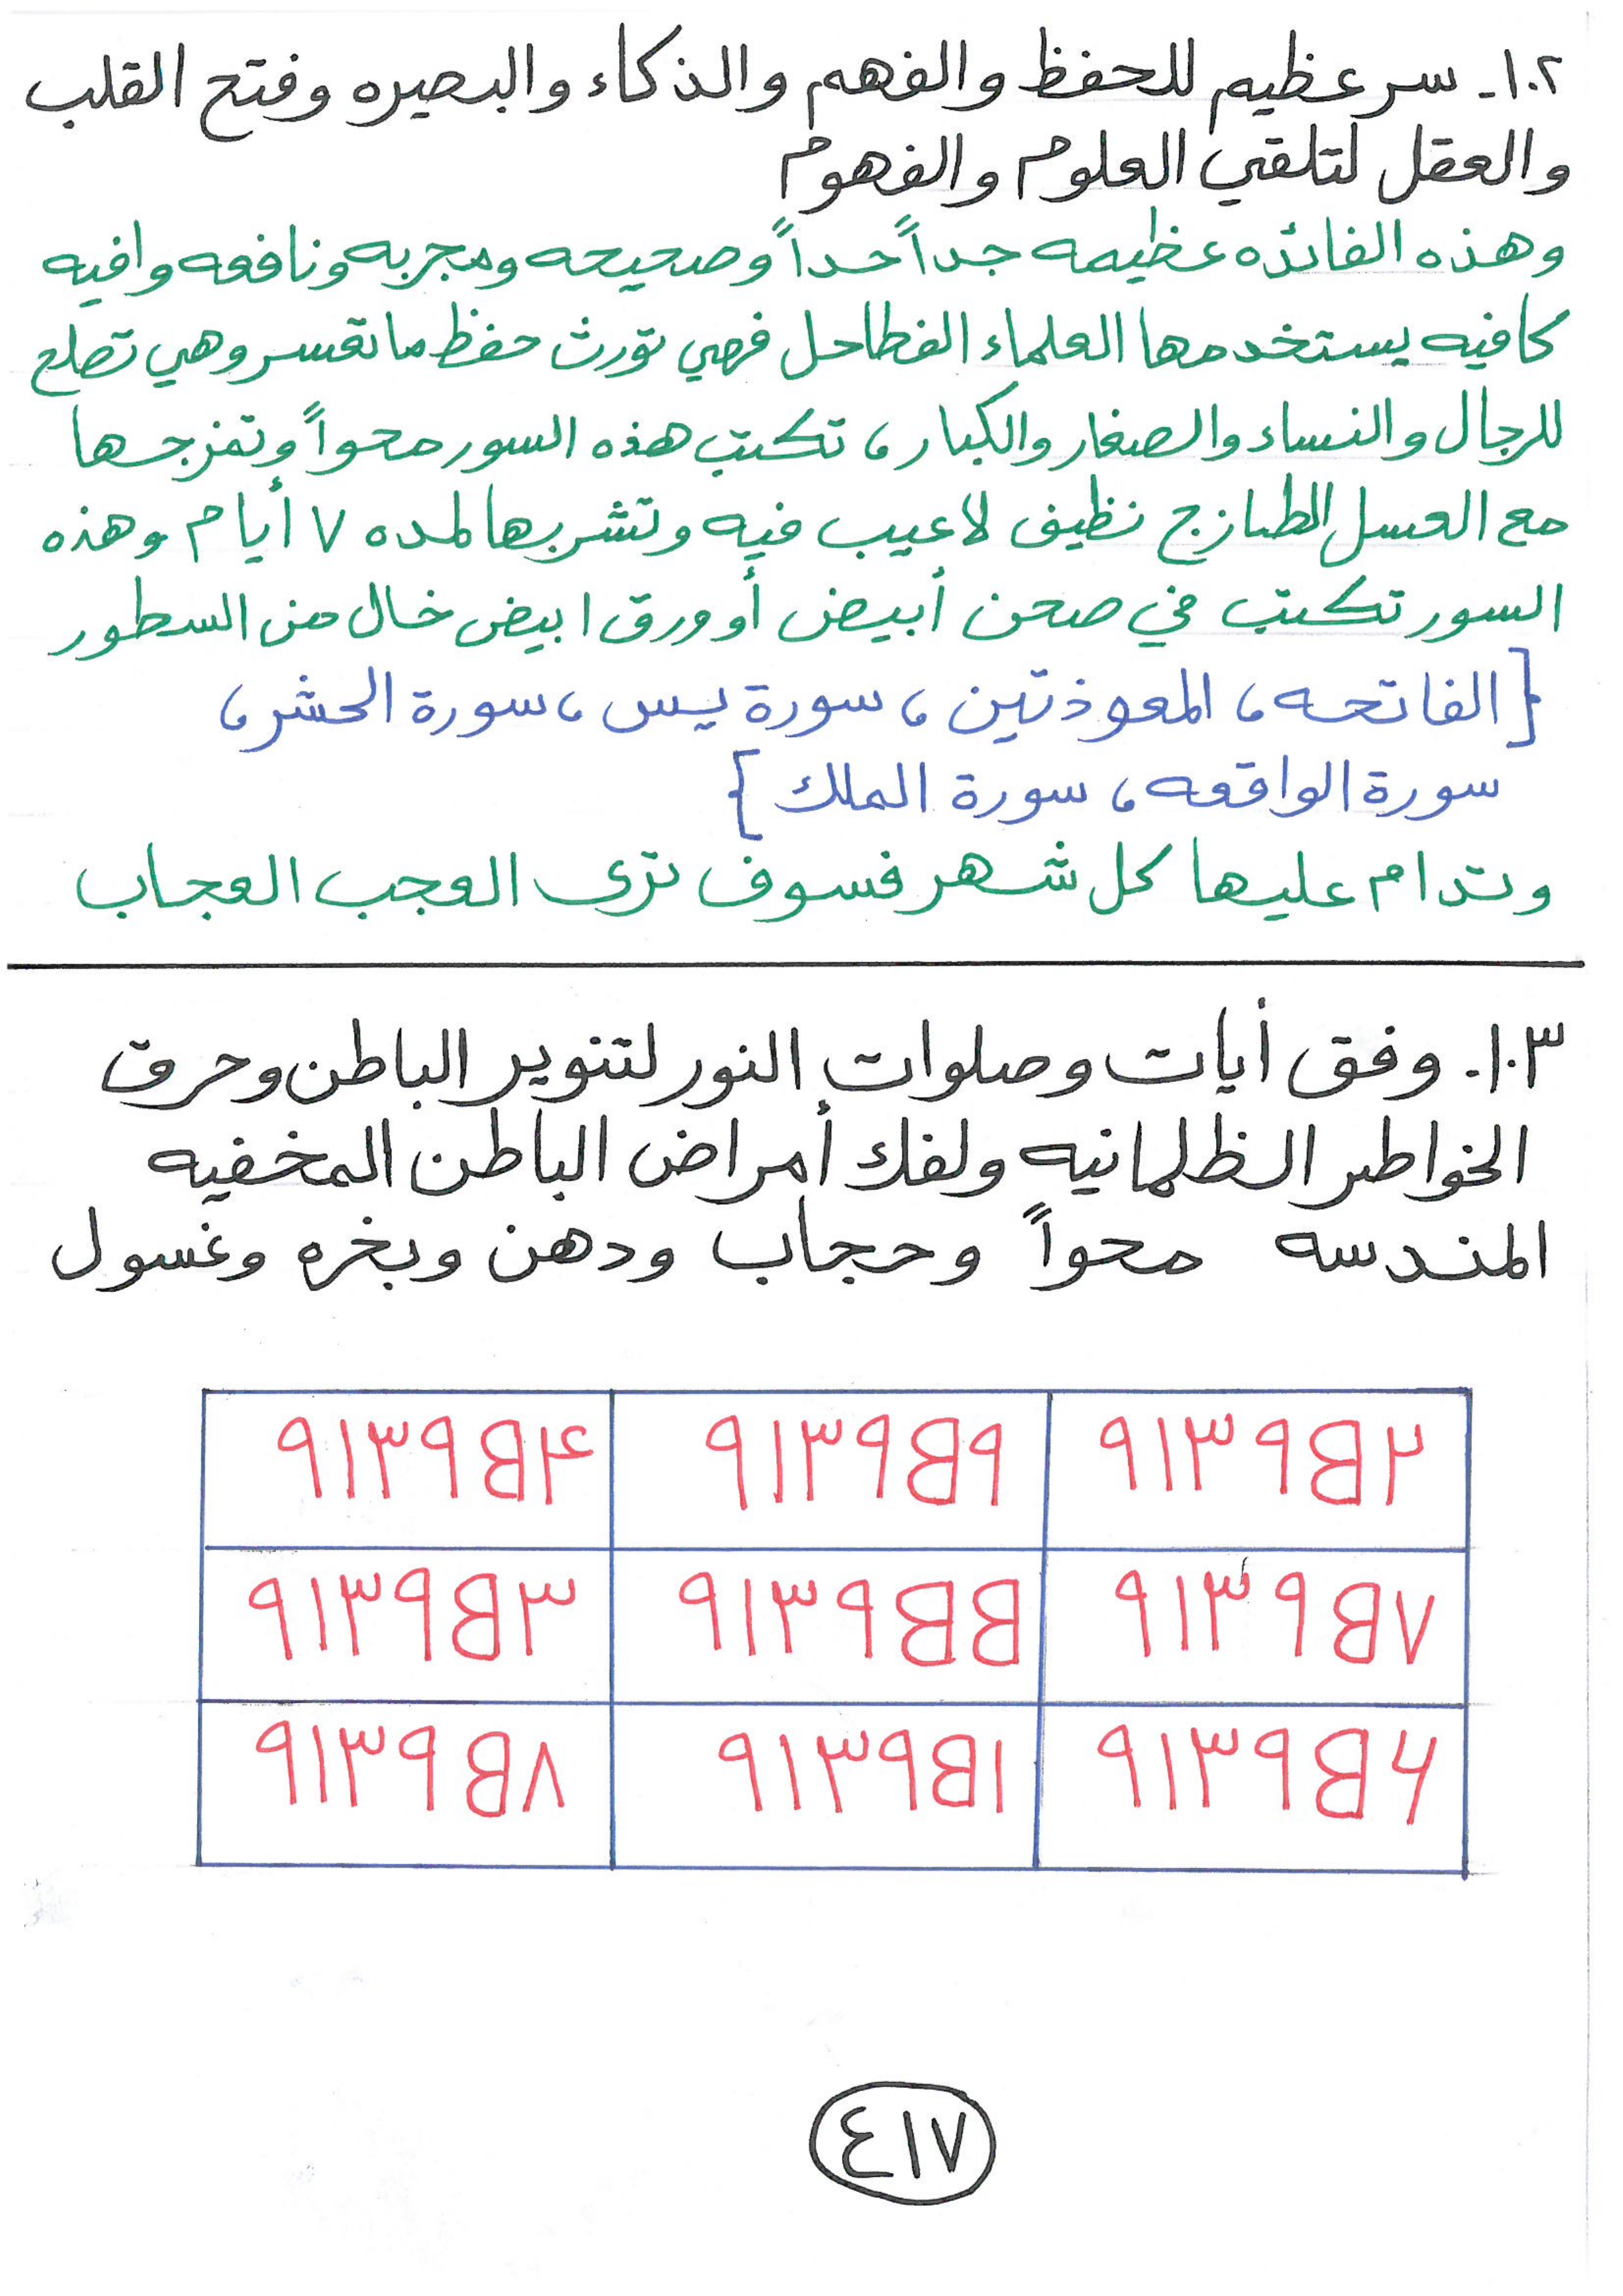 ١٠٢- سر عظيم للحفظ والفهم والذكاء والبصيره وفتح القلب
والعقل لتلقي العلوم والفهوم
وهذه الفائده عظيمه جداً جداً وصحيحه ومجربه ونافعه وافيه
كافيه يستخدمها العلماء الفطاحل فهي تورث حفظ ماتعسر وهي تصلح
للرجال والنساء والصغار والكبار، تكتب هذه السور محواً وتمزجها
مع العسل الطازج نظيف لاعيب فيه وتشربها لمده ٧ أيام وهذه
السور تكتب في صحن أبيض أو ورق ابيض خال من السطور
[الفاتحه، المعوذتين، سورة يس، سورة الحشر،
سورة الواقعه، سورة الملك]
وتدام عليها كل شهر فسوف ترى العجب العجاب
١٠٣- وفق أيات وصلوات النور لتنوير الباطن وحرق
الخواطر الظلمانيه ولفك أمراض الباطن المخفيه
المندسه محواً وحجاب ودهن وبخره وغسول
٩١٣٩B٢ ٩١٣٩B٩ ٩١٣٩B۴
٩١٣٩B٧ ٩١٣٩BB ٩١٣٩B٣
٩١٣٩B۶ ٩١٣٩B١ ٩١٣٩B٨
٤١٧